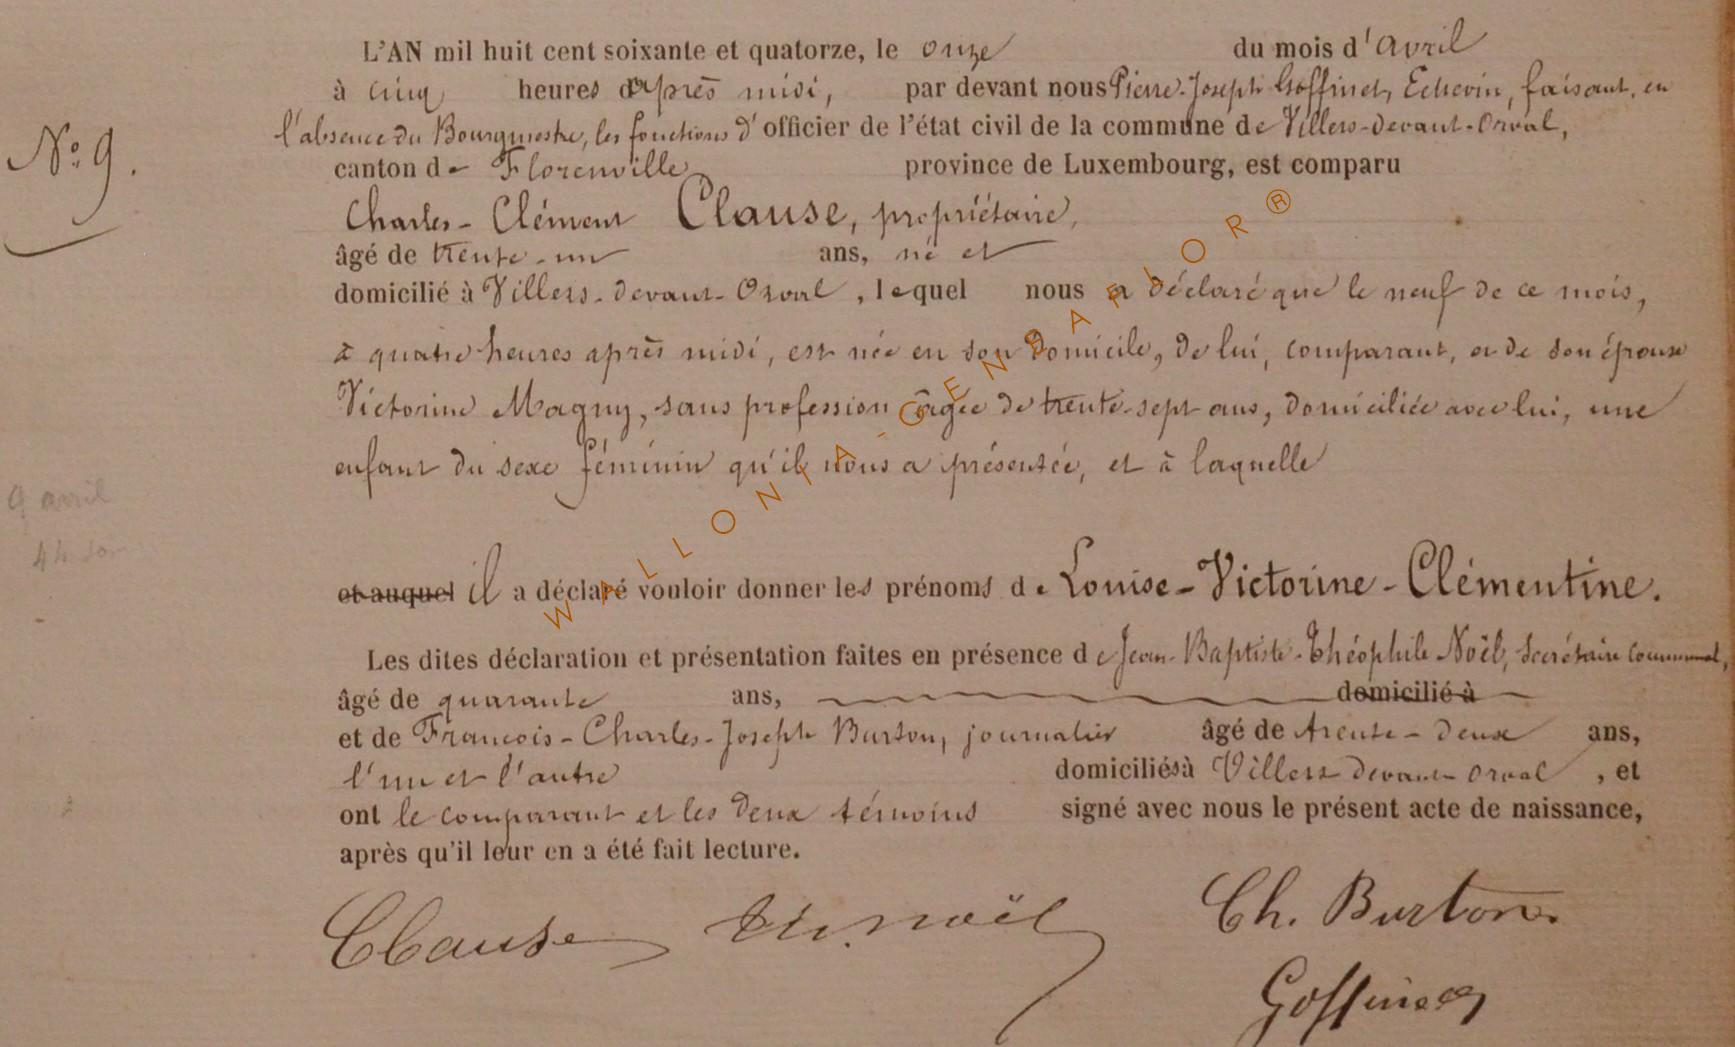 L'AN mil huit cent soixante et quatorze, le onze du mois d'avril
à cinq heures après midi, par devant nous Pierre-Joseph Goffinet, Echevin, faisant, en
l'absence du Bourgmestre, les fonctions d'officier de l'état civil de la commune de Villers-devant-Orval,
N° 9.
canton de Florenville province de Luxembourg, est comparu
Charles-Clément Clause, propriétaire,
âgé de trente-un ans, né et
domicilié à Villers-devant-Orval, lequel nous a déclaré que le neuf de ce mois,
à quatre heures après midi, est née en son domicile, de lui, comparant, et de son épouse
Victorine Magny, sans profession âgée de trente-sept ans, domiciliée avec lui, une
enfant du sexe féminin qu'il nous a présentée, et à laquelle
9 avril
et auquel il a déclaré vouloir donner les prénoms de Louise-Victorine-Clémentine.
Les dites déclaration et présentation faites en présence de Jean-Baptiste-Théophile Noël, Secrétaire communal,
âgé de quarante ans, domicilié à
et de François-Charles-Joseph Burton, journalier âgé de trente-deux ans,
l'un et l'autre domiciliés à Villers devant Orval, et
ont le comparant et les deux témoins signé avec nous le présent acte de naissance,
après qu'il leur en a été fait lecture.
Clause Th. Noël Ch. Burton
Goffinet
WALLONIA-GENDAFLOR®